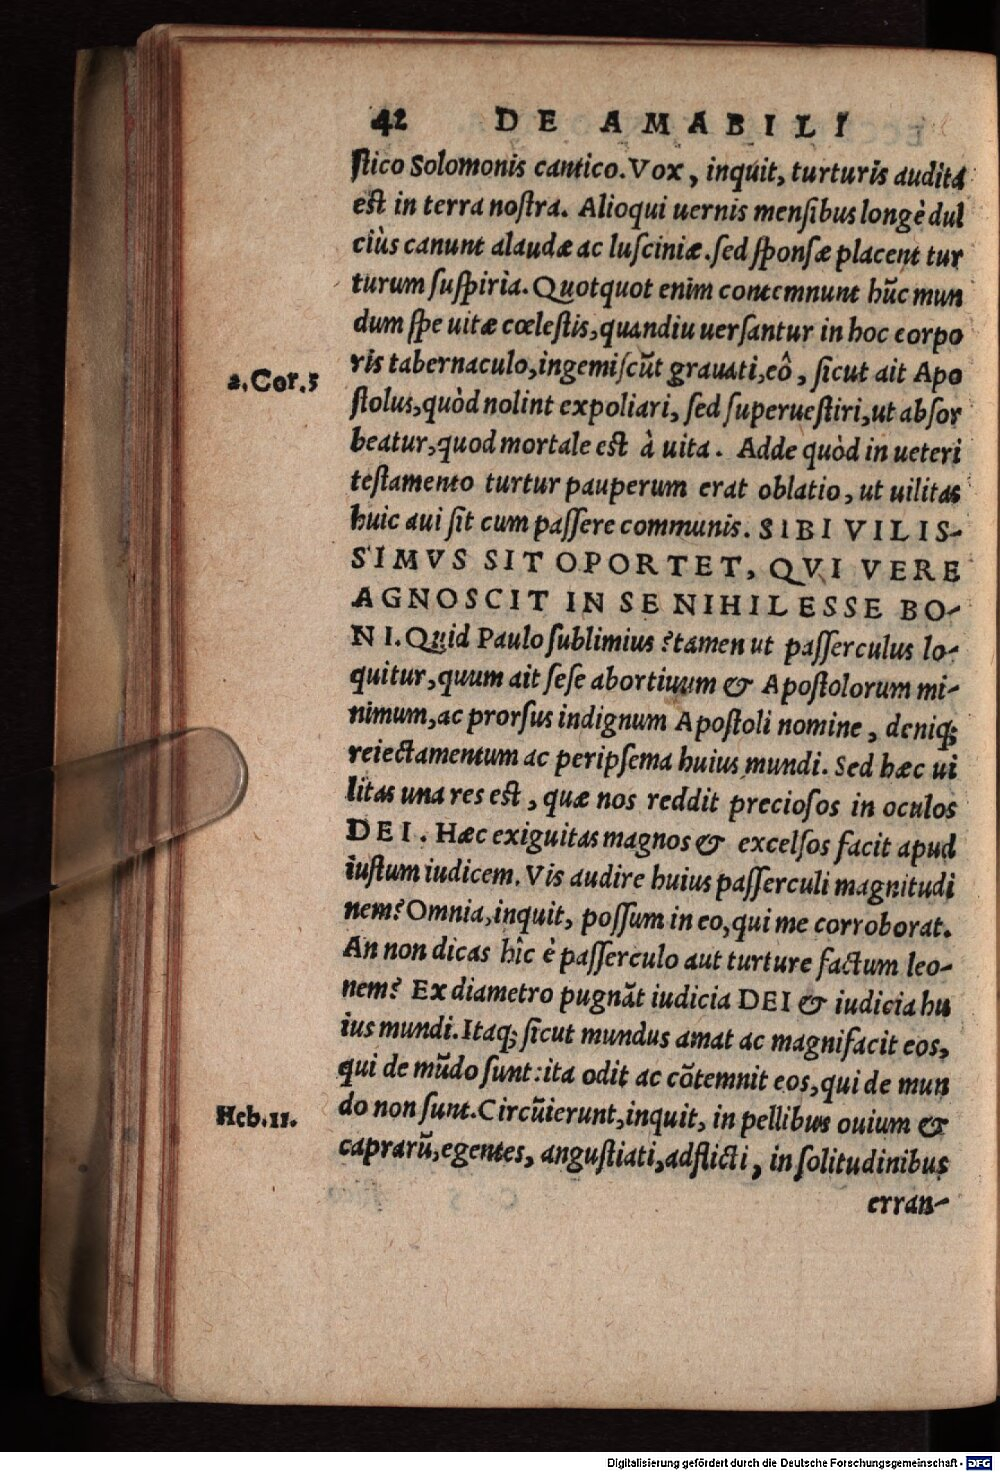 42 DE AMABILI
ſtico Solomonis cantico. Vox, inquit, turturis audita
est in terra noſtra. Alioqui uernis menſibus longè dul
ciùs canunt alaudæ ac luſciniæ. ſed ſponſæ placent tur
turum ſuſpiria. Quotquot enim contemnunt hūc mun
dum ſpe uitæ cœleſtis, quandiu uerſantur in hoc corpo
ris tabernaculo, ingemiſcūt grauati, eô, ſicut ait Apo
2. Cor. 5
ſtolus, quòd nolint expoliari, ſed ſuperueſtiri, ut abſor
beatur, quod mortale est à uita. Adde quòd in ueteri
teſtamento turtur pauperum erat oblatio, ut uilitas
huic aui ſit cum paſſere communis. SIBI VILIS-
SIMVS SIT OPORTET, QVI VERE
AGNOSCIT IN SE NIHIL ESSE BO-
NI. Quid Paulo ſublimius? tamen ut paſſerculus lo-
quitur, quum ait ſeſe abortiuum & Apoſtolorum mi-
nimum, ac prorſus indignum Apoſtoli nomine, deniq;
reiectamentum ac peripſema huius mundi. Sed hæc ui
litas una res est, quæ nos reddit precioſos in oculos
DEI. Hæc exiguitas magnos & excelſos facit apud
iuſtum iudicem. Vis audire huius paſſerculi magnitudi
nem? Omnia, inquit, poſſum in eo, qui me corroborat.
An non dicas hîc è paſſerculo aut turture factum leo-
nem? Ex diametro pugnāt iudicia DEI & iudicia hu
ius mundi. Itaq; ſicut mundus amat ac magnifacit eos,
qui de mūdo ſunt: ita odit ac cōtemnit eos, qui de mun
do non ſunt. Circūierunt, inquit, in pellibus ouium &
Heb. 11.
caprarū, egentes, anguſtiati, adflicti, in ſolitudinibus
erran-
Digitalisierung gefördert durch die Deutsche Forschungsgemeinschaft - DFG